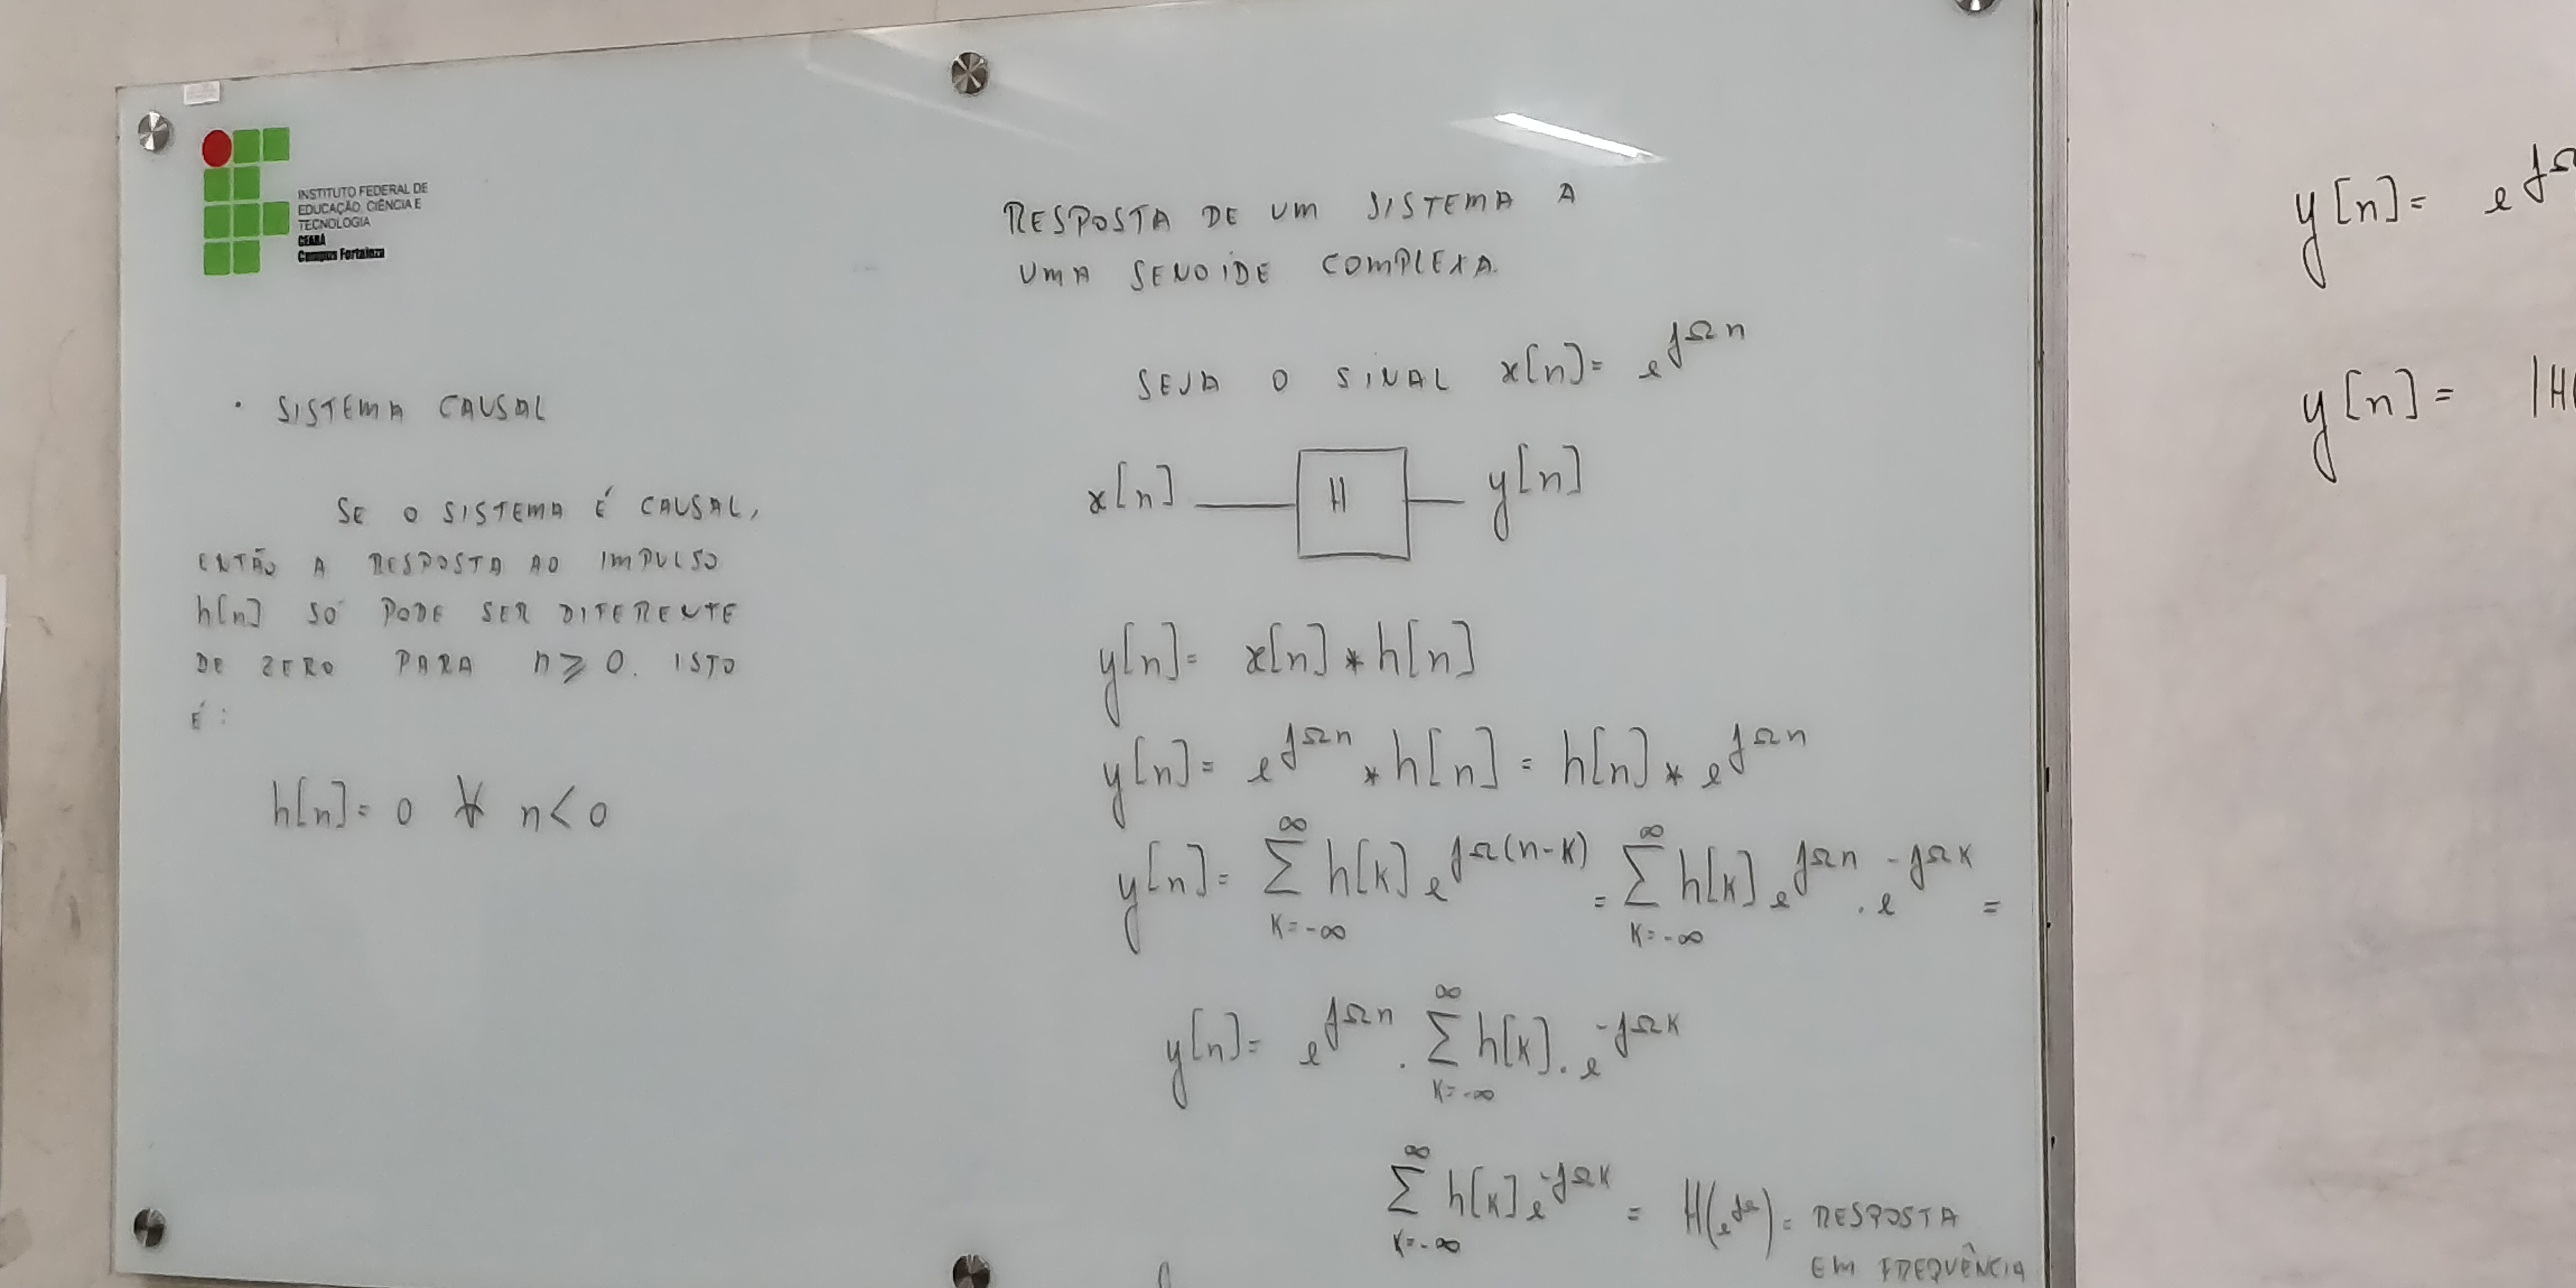 INSTITUTO FEDERAL DE
EDUCAÇÃO, CIÊNCIA E
TECNOLOGIA
CEARÁ
Campus Fortaleza
• SISTEMA CAUSAL
SE O SISTEMA É CAUSAL,
ENTÃO A RESPOSTA AO IMPULSO
h[n] SÓ PODE SER DIFERENTE
DE ZERO PARA n ⩾ 0. ISTO
É:
h[n] = 0 ∀ n < 0
RESPOSTA DE UM SISTEMA A
UMA SENOIDE COMPLEXA.
SEJA O SINAL x[n] = e^{jΩn}
x[n] H y[n]
y[n] = x[n] * h[n]
y[n] = e^{jΩn} * h[n] = h[n] * e^{jΩn}
y[n] = ∑_{K=-∞}^{∞} h[K] e^{jΩ(n-K)} = ∑_{K=-∞}^{∞} h[K] e^{jΩn} . e^{-jΩK} =
y[n] = e^{jΩn} . ∑_{K=-∞}^{∞} h[K] . e^{-jΩK}
∑_{K=-∞}^{∞} h[K] e^{-jΩK} = H(e^{jΩ}) = RESPOSTA
EM FREQUÊNCIA
y[n] = e^{jΩ
y[n] = |H(